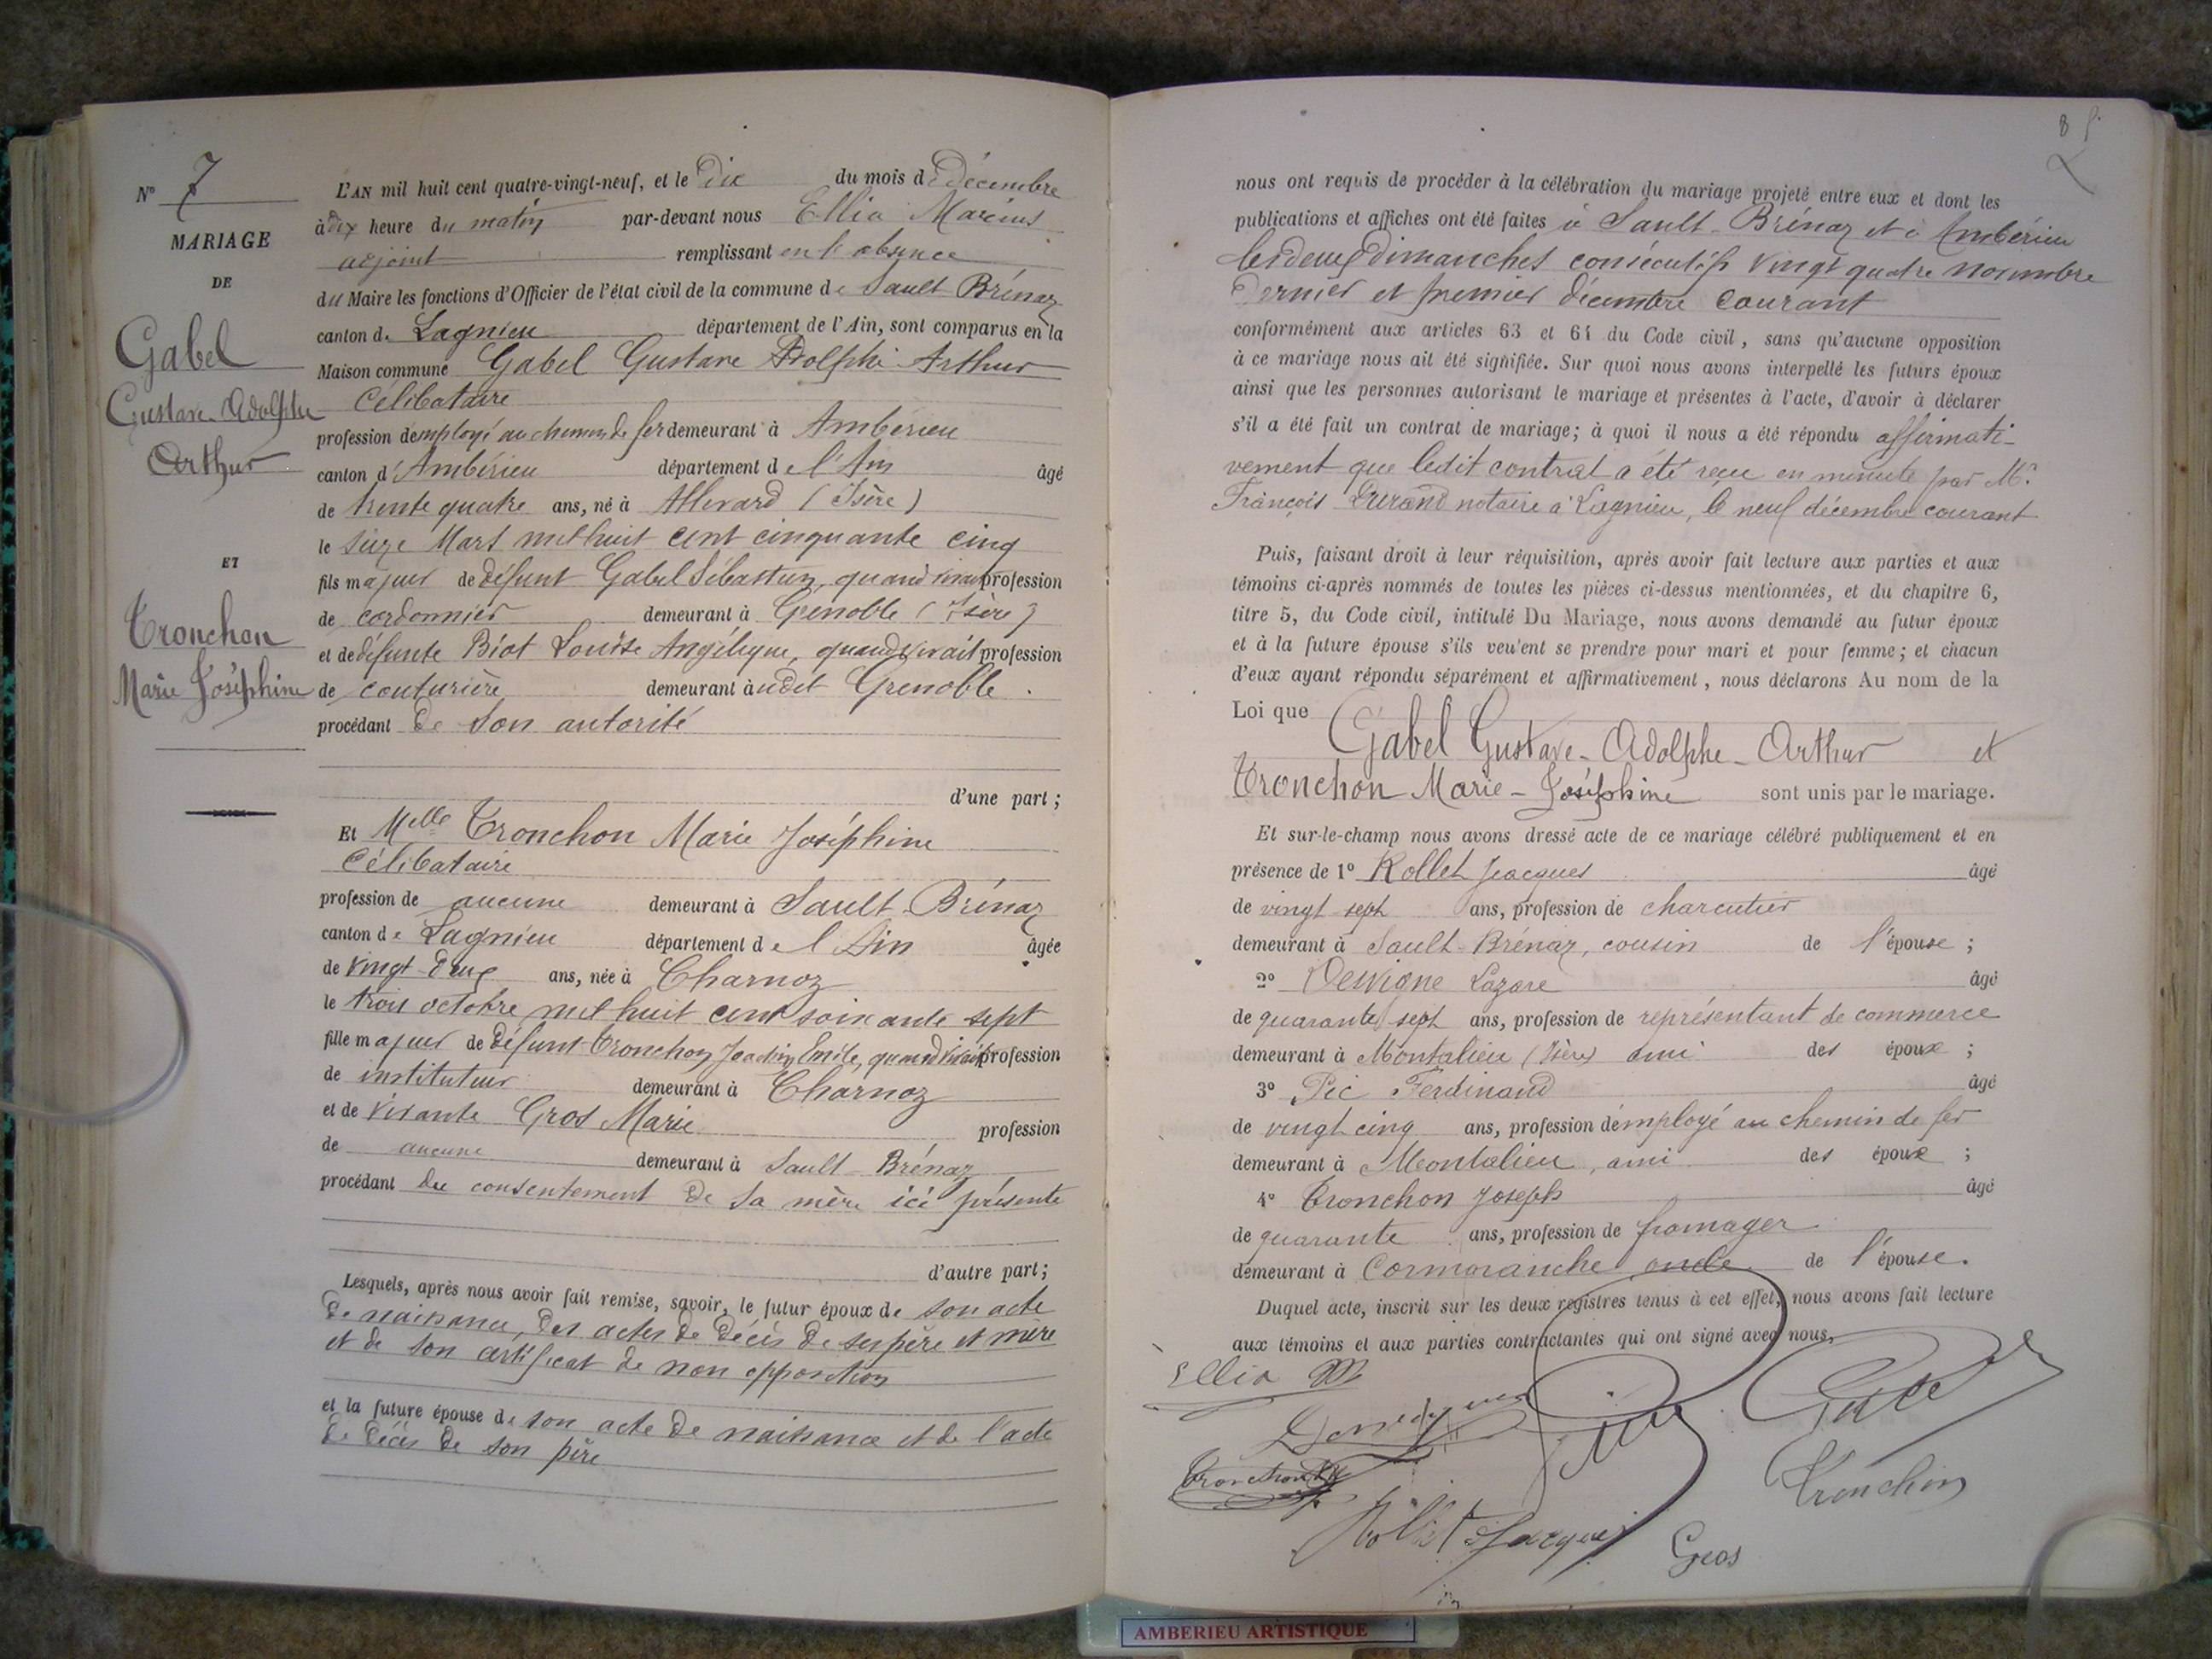 N° 7
MARIAGE
DE
Gabel
Gustave-Adolphe
Arthur
ET
Tronchon
Marie Joséphine
L'AN mil huit cent quatre-vingt-neuf, et le Dix du mois de Décembre
à dix heure du matin par-devant nous Ellia Marius
adjoint remplissant en l'absence
du Maire les fonctions d'Officier de l'état civil de la commune de Sault Brénaz
canton de Lagnieu département de l'Ain, sont comparus en la
Maison commune Gabel Gustave Adolphe Arthur
Célibataire
profession d'employé au chemin de fer demeurant à Ambérieu
canton d'Ambérieu département de l'Ain âgé
de trente quatre ans, né à Allevard (Isère)
le seize Mars mil huit cent cinquante cinq
fils majeur de défunt Gabel Sébastien, quand vivait profession
de cordonnier demeurant à Grenoble (Isère)
et de défunte Biot Louise Angélique, quand vivait profession
de couturière demeurant audit Grenoble.
procédant de son autorité
d'une part;
Et Melle Tronchon Marie Joséphine
Célibataire
profession de aucune demeurant à Sault-Brénaz
canton de Lagnieu département de l'Ain âgée
de vingt-deux ans, née à Charnoz
le trois octobre mil huit cent soixante sept
fille majeur de défunt Tronchon Joachim Emile, quand vivait profession
de instituteur demeurant à Charnoz
et de vivante Gros Marie profession
de aucune demeurant à Sault-Brénaz
procédant du consentement de sa mère ici présente
d'autre part;
Lesquels, après nous avoir fait remise, savoir, le futur époux de son acte
de naissance, des actes de décès de ses père et mère
et de son certificat de non opposition
et la future épouse de son acte de naissance et de l'acte
de décès de son père
nous ont requis de procéder à la célébration du mariage projeté entre eux et dont les
publications et affiches ont été faites à Sault-Brénaz et à Ambérieu
les deux dimanches consécutifs vingt quatre novembre
dernier et premier décembre courant
conformément aux articles 63 et 64 du Code civil, sans qu'aucune opposition
à ce mariage nous ait été signifiée. Sur quoi nous avons interpellé les futurs époux
ainsi que les personnes autorisant le mariage et présentes à l'acte, d'avoir à déclarer
s'il a été fait un contrat de mariage; à quoi il nous a été répondu affirmati-
vement que ledit contrat a été reçu en minute par Me
François Durand notaire à Lagnieu, le neuf décembre courant
Puis, faisant droit à leur réquisition, après avoir fait lecture aux parties et aux
témoins ci-après nommés de toutes les pièces ci-dessus mentionnées, et du chapitre 6,
titre 5, du Code civil, intitulé Du Mariage, nous avons demandé au futur époux
et à la future épouse s'ils veulent se prendre pour mari et pour femme; et chacun
d'eux ayant répondu séparément et affirmativement, nous déclarons Au nom de la
Loi que
Gabel Gustave-Adolphe-Arthur et
Tronchon Marie-Joséphine sont unis par le mariage.
Et sur-le-champ nous avons dressé acte de ce mariage célébré publiquement et en
présence de 1° Rollet Jacques âgé
de vingt sept ans, profession de charcutier
demeurant à Sault-Brénaz, cousin de l'épouse;
2° Desvigne Lazare âgé
de quarante sept ans, profession de représentant de commerce
demeurant à Montalieu (Isère) ami des époux;
3° Pic Ferdinand âgé
de vingt cinq ans, profession d'employé au chemin de fer
demeurant à Montalieu, ami des époux;
4° Tronchon Joseph âgé
de quarante ans, profession de fromager
demeurant à Cormoranche oncle de l'épouse.
Duquel acte, inscrit sur les deux registres tenus à cet effet, nous avons fait lecture
aux témoins et aux parties contractantes qui ont signé avec nous,
Ellia M
Tronchon
Tronchon
Rollet Jacques
Gros
AMBERIEU ARTISTIQUE